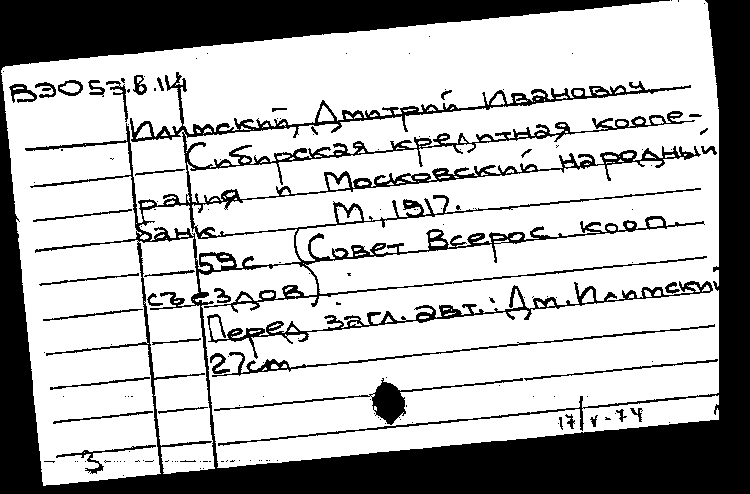 ВЭО53.В.114
Илимский, Дмитрий Иванович.
Сибирская кредитная коопе-
рация и Московский народный
банк. М., 1917.
59с. (Совет Всерос. кооп.
съездов).
Перед загл. авт.: Дм. Илимский
27cm.
17/V-74
3